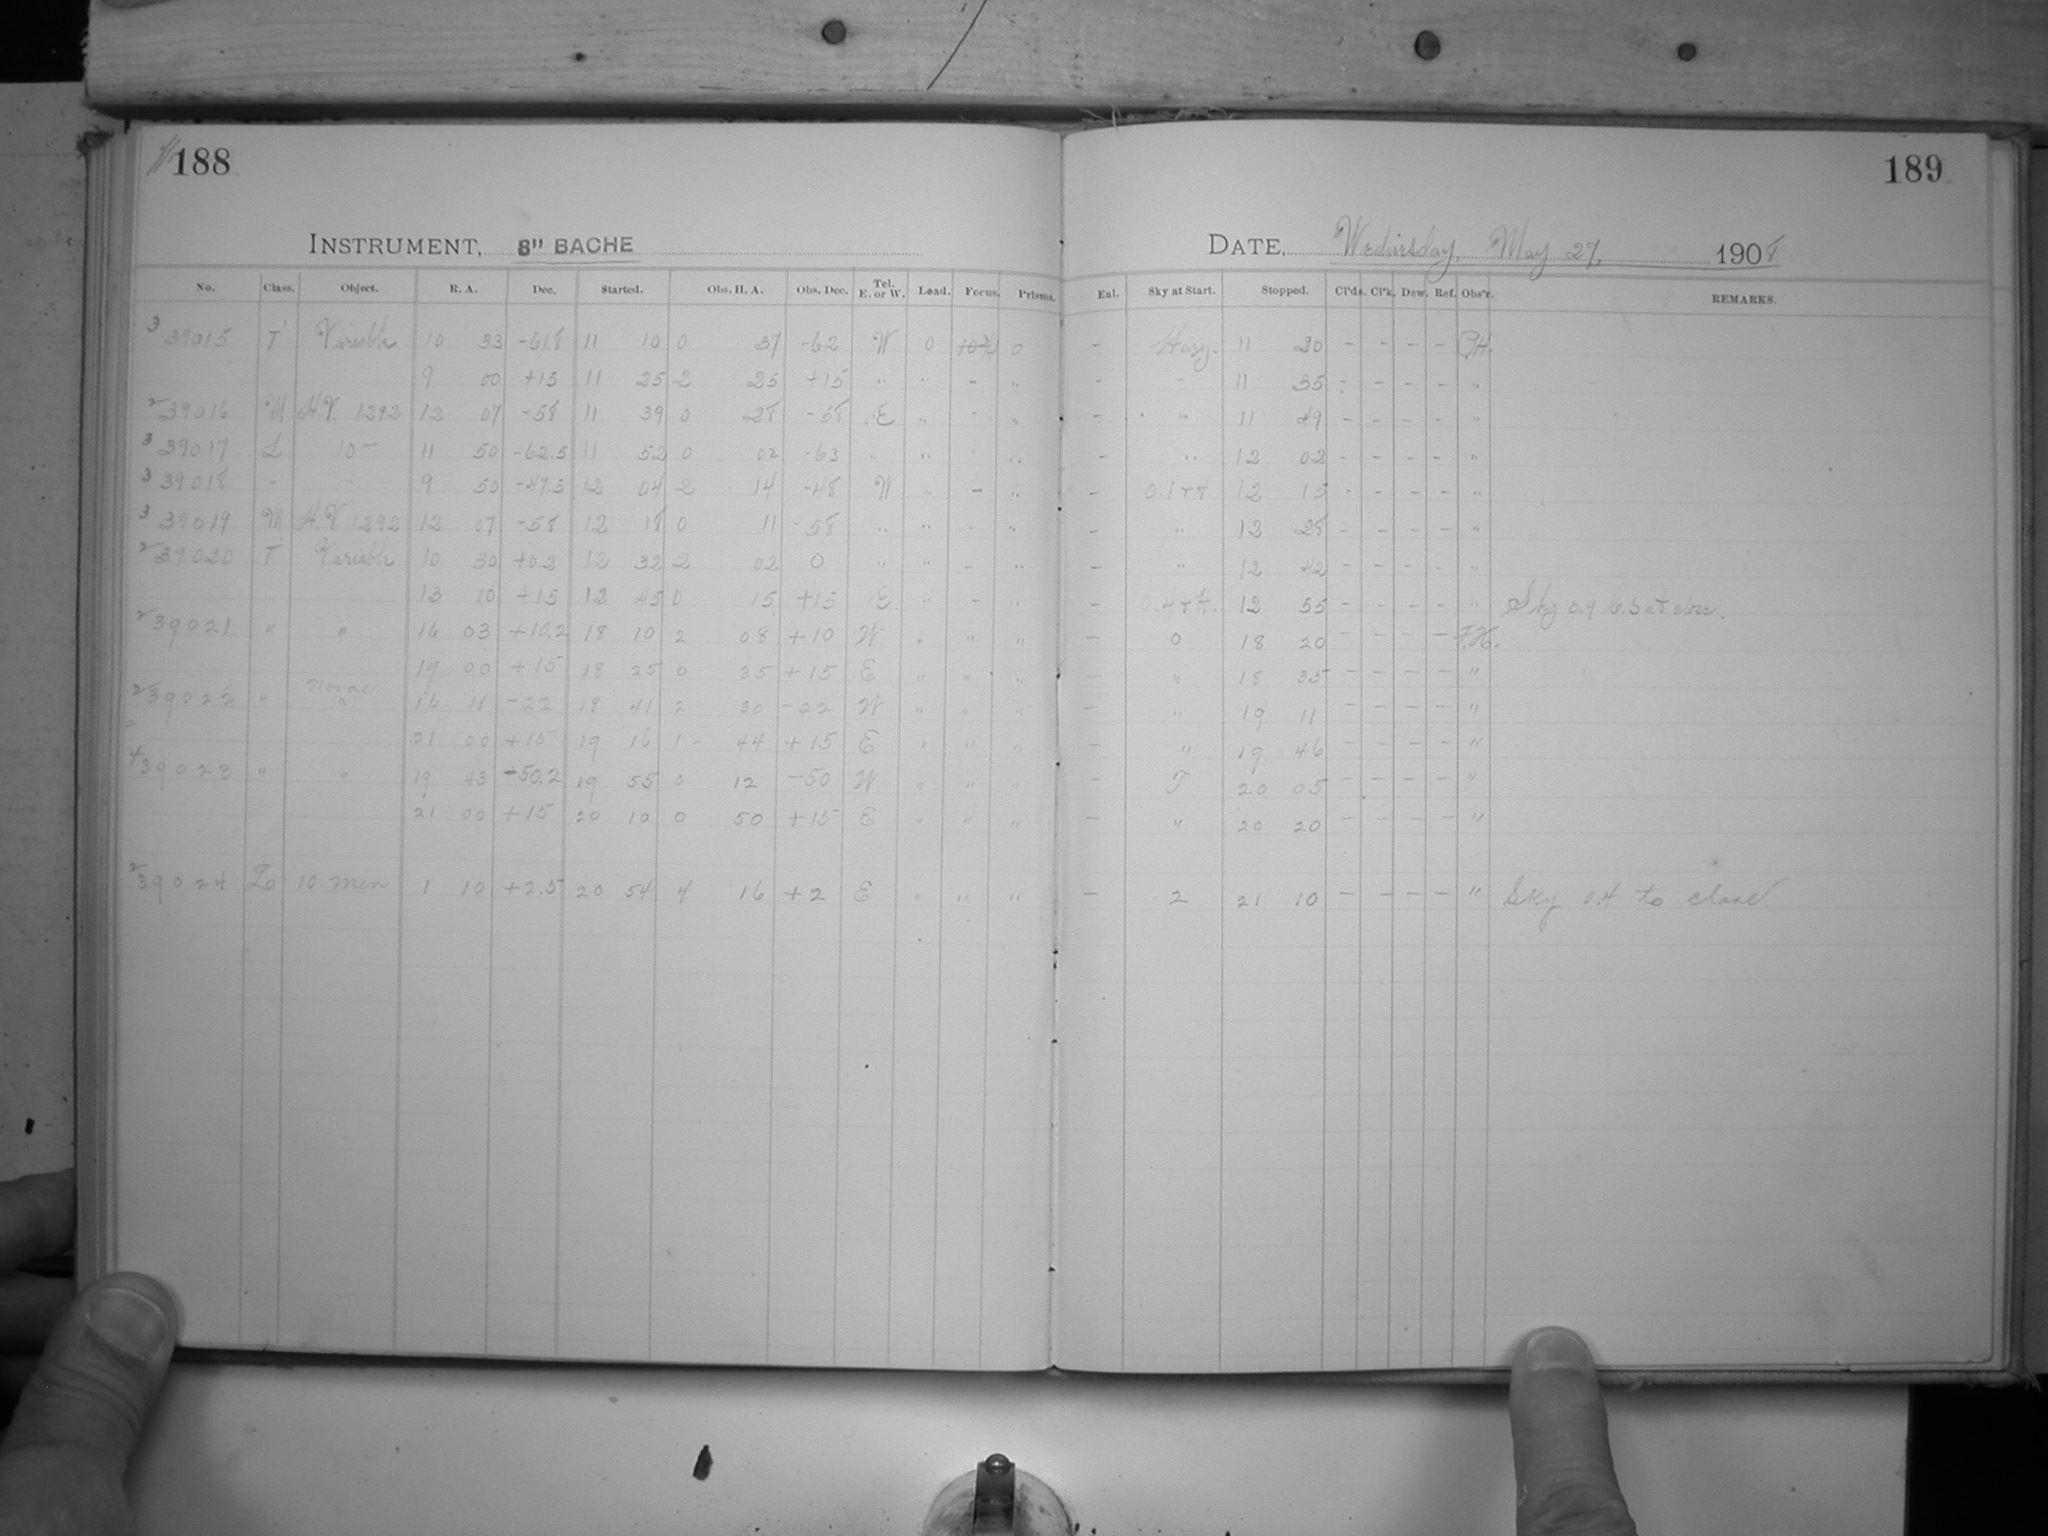 188
189
INSTRUMENT, 8" BACHE
DATE, Wednesday, May 27, 1908
No. Class. Object. R. A. Dec. Started. Obs. H. A. Obs. Dec. Tel. E. or W. Load. Focus. Prisms. Enl. Sky at Start. Stopped. Cl'ds. Cl'k. Dew. Ref. Obs'r. REMARKS.
3 39015 T Variable 10 33 -61.8 11 10 0 37 -62 W 0 0 - Hazy. 11 20 - - - -
9 00 +15 11 25 2 25 +15 " " - " - " 11 35 - - - - "
2 39016 M H.V. 1292 12 07 -58 11 39 0 28 -58 E " " " - " 11 49 - - - - "
3 39017 L 10- 11 50 -62.5 11 52 0 02 -63 " " " " - " 12 02 - - - - "
3 39018 - " 9 50 -47.5 12 04 2 14 -48 W " - " - 12 15 - - - - "
3 39019 M H.V. 1292 12 07 -58 12 18 0 11 -58 " " - " - " 12 28 - - - - "
2 39020 T Variable 10 30 +0.2 12 32 2 02 0 " " - " - " 12 42 - - - - "
13 00 +15 12 45 0 15 +15 E " - " - 12 55 - - - - " Sky
2 39021 " " 16 03 +10.2 18 10 2 08 +10 W " " " - 0 18 20 - - - - F.H.
19 00 +15 18 25 0 35 +15 E " " " - " 18 35 - - - - "
2 39022 " Novae " 16 11 -22 18 41 2 30 -22 W " " " - " 19 11 - - - - "
21 00 +15 19 16 1 - 44 +15 E " " " - " 19 46 - - - - "
4 39023 " " 19 43 -50.2 19 55 0 12 -50 W " " " - T 20 05 - - - - "
21 00 +15 20 10 0 50 +15 E " " " - " 20 20 - - - - "
2 39024 L 10 min 1 10 +2.5 20 54 4 16 +2 E " " " - 2 21 10 - - - - " Sky 0.4 to close